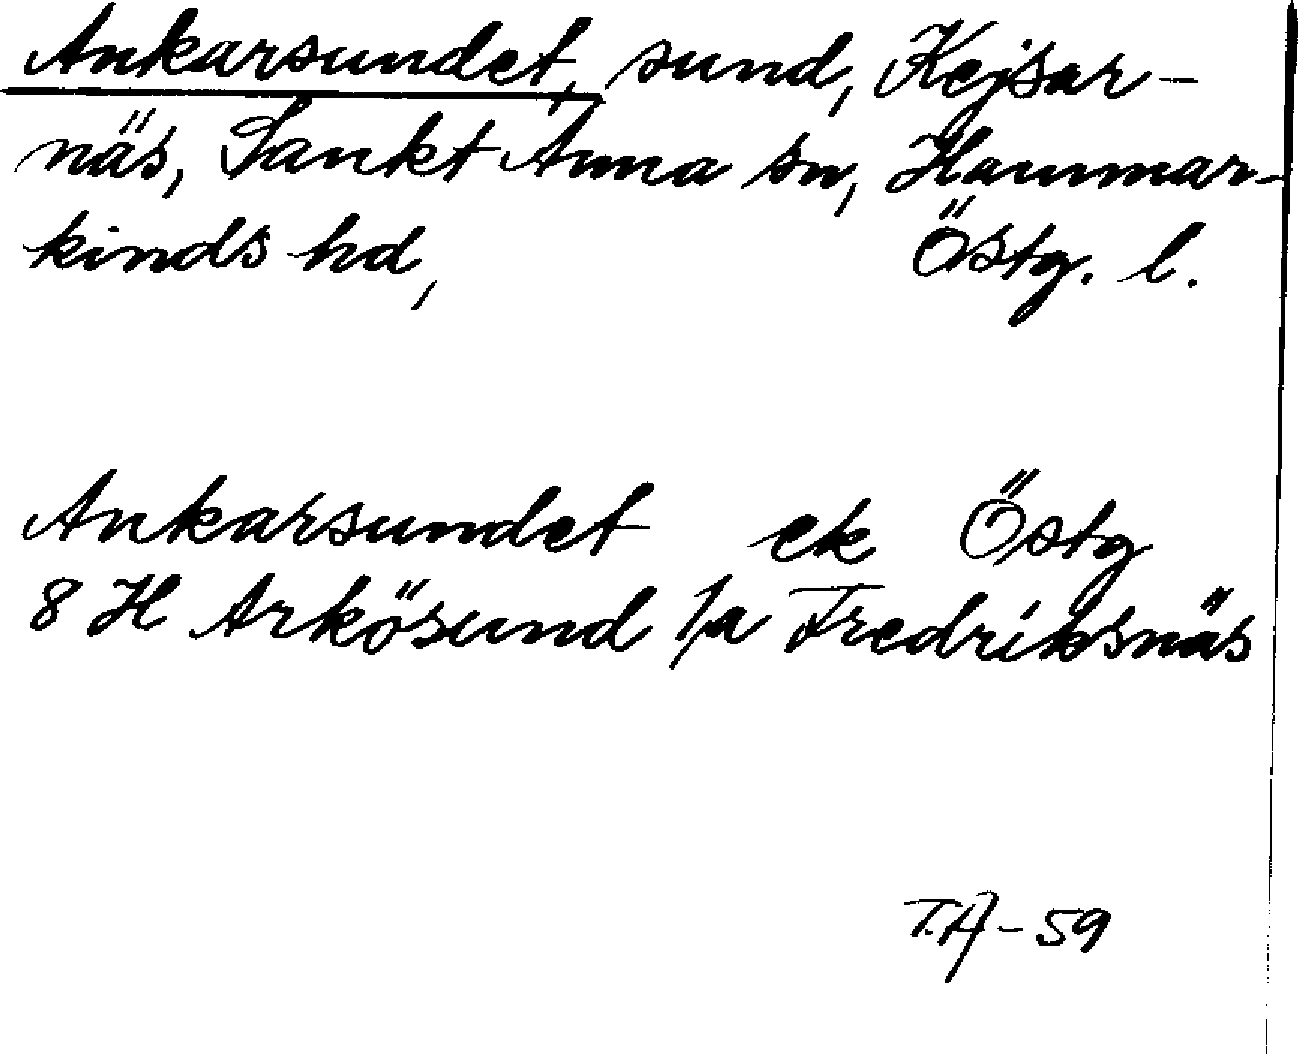 Ankarsundet, sund, Kejsar-
näs, Sankt Anna sn, Hammar-
kinds hd, Östg. l.
Ankarsundet ek Östg
8 H Arkösund 1/a Fredriksnäs
T.A-59